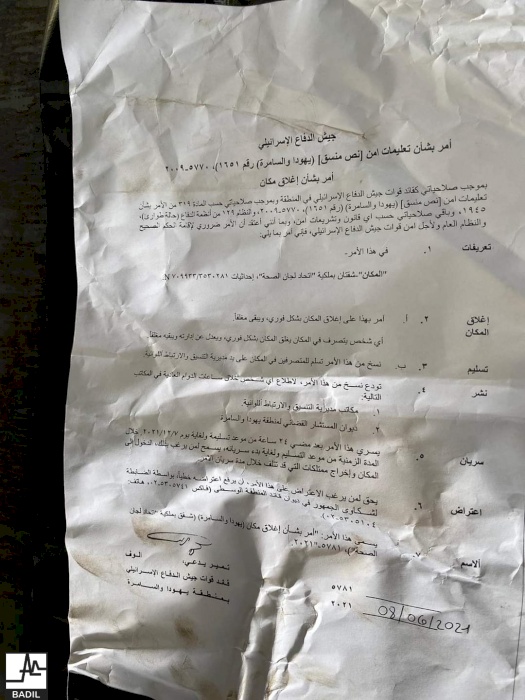 جيش الدفاع الإسرائيلي
أمر بشأن تعليمات امن [نص منسق] (يهودا والسامرة) رقم ١٦٥١)، ٥٧٧٠-٢٠٠٩
أمر بشأن إغلاق مكان
بموجب صلاحياتي كقائد قوات جيش الدفاع الإسرائيلي في المنطقة وبموجب صلاحياتي حسب المادة ٣١٩ من الأمر بشأن
تعليمات امن [نص منسق] (يهودا والسامرة) (رقم ١٦٥١)، ٥٧٧٠-٢٠٠٩، والنظام ١٢٩ من أنظمة الدفاع (حالة طوارئ)،
١٩٤٥، وباقي صلاحياتي حسب اي قانون وتشريعات امن، وبما أنني أعتقد أن الأمر ضروري لإقامة الحكم الصحيح
والنظام العام ولأجل امن قوات جيش الدفاع الإسرائيلي، فإني أمر بما يلي:
تعريفات ١. في هذا الأمر.
"المكان"-شقتان بملكية "اتحاد لجان الصحة"، إحداثيات N٧٠٩٩٣٣/٣٥٣٠٢٨١.
إغلاق المكان ٢. أ. أمر بهذا على إغلاق المكان بشكل فوري، ويبقى مغلقا.
أي شخص يتصرف في المكان يغلق المكان بشكل فوري، ويعدل عن إدارته ويبقيه مغلقا.
تسليم ٣. ب. نسخ من هذا الأمر تسلم للمتصرفين في المكان على يد مديرية التنسيق والارتباط اللوائية.
نشر ٤. تودع نسخ من هذا الأمر، لاطلاع أي شخص خلال ساعات الدوام العادية في المكاتب
التالية:
١. مكاتب مديرية التنسيق والارتباط اللوائية.
٢. ديوان المستشار القضائي لمنطقة يهودا والسامرة
سريان ٥. يسري هذا الأمر بعد مضي ٢٤ ساعة من موعد التسليم ولغاية يوم ٢٠٢١/١٢/٧. خلال
المدة الزمنية من موعد التسليم ولغاية بدء سريانه، يسمح لمن يرغب بذلك، الدخول إلى
المكان وإخراج ممتلكات التي قد تتلف خلال مدة سريان الأمر.
اعتراض ٦. يحق لمن يرغب الاعتراض على هذا الأمر، أن يرفع اعتراضه خطيا، بواسطة الضابطة
لشكاوى الجمهور في ديوان قائد المنطقة الوسطى (فاكس ٠٢-٥٣٠٥٧٤١، هاتف:
٠٢-٥٣٠٥١٠٤).
الاسم ٧. يسمى هذا الأمر: "أمر بشأن إغلاق مكان (يهودا والسامرة) (شقق بملكية "اتحاد لجان
الصحة")، ٥٧٨١-٢٠٢١".
تمير يدعي، الوف
قائد قوات جيش الدفاع الإسرائيلي
بمنطقة يهودا والسامرة
٥٧٨١
٢٠٢١
08/06/2021
BADIL